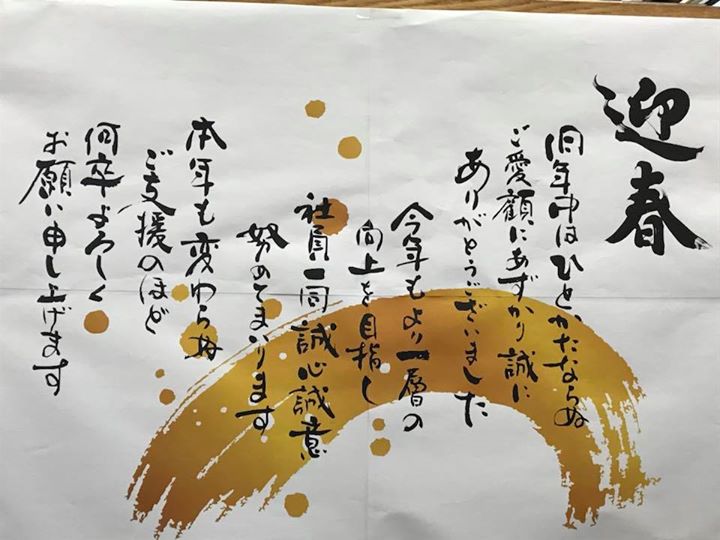 迎春
旧年中はひとかたならぬ
ご愛顧にあずかり誠に
ありがとうございました
今年もより一層の
向上を目指し
社員一同誠心誠意
努めてまいります
本年も変わらぬ
ご支援のほど
何卒よろしく
お願い申し上げます